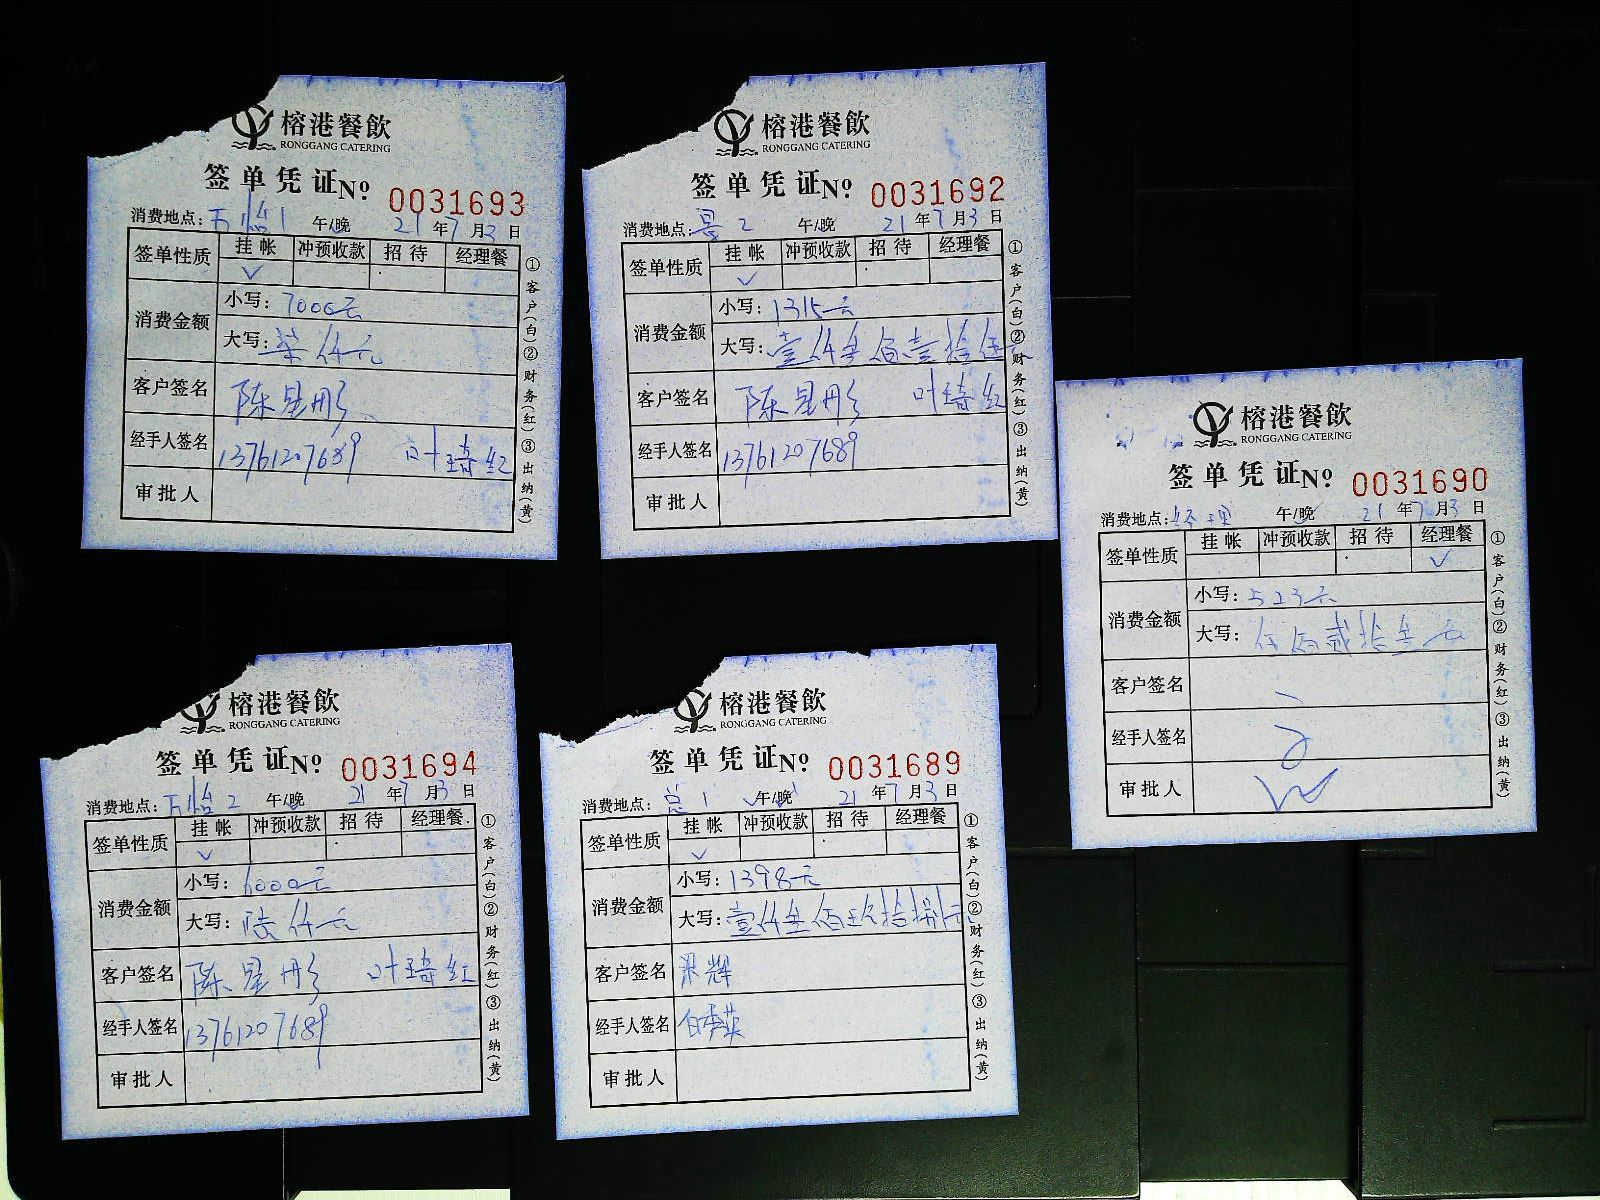 榕港餐飲
RONGGANG CATERING
签单凭证 Nº 0031693
消费地点: 万怡1 午/晚 21年7月3日
签单性质 挂帐 冲预收款 招待 经理餐
✓
消费金额 小写: 7000元
大写: 柒仟元
客户签名 陈星彤
经手人签名 13761207689 叶琦红
审批人
①客户(白)②财务(红)③出纳(黄)
榕港餐飲
RONGGANG CATERING
签单凭证 Nº 0031692
消费地点: 景2 午/晚 21年7月3日
签单性质 挂帐 冲预收款 招待 经理餐
✓
消费金额 小写: 1315元
大写: 壹仟叁佰壹拾伍
客户签名 陈星彤 叶琦红
经手人签名 13761207689
审批人
①客户(白)②财务(红)③出纳(黄)
榕港餐飲
RONGGANG CATERING
签单凭证 Nº 0031690
消费地点: 午/晚 21年7月3日
签单性质 挂帐 冲预收款 招待 经理餐
✓
消费金额 小写: 523元
大写: 伍佰贰拾叁元
客户签名
经手人签名
审批人
①客户(白)②财务(红)③出纳(黄)
榕港餐飲
RONGGANG CATERING
签单凭证 Nº 0031694
消费地点: 万怡2 午/晚 21年7月3日
签单性质 挂帐 冲预收款 招待 经理餐
✓
消费金额 小写: 6000元
大写: 陆仟元
客户签名 陈星彤 叶琦红
经手人签名 13761207689
审批人
①客户(白)②财务(红)③出纳(黄)
榕港餐飲
RONGGANG CATERING
签单凭证 Nº 0031689
消费地点: 总1 午/晚 21年7月3日
签单性质 挂帐 冲预收款 招待 经理餐
✓
消费金额 小写: 1398元
大写: 壹仟叁佰玖拾捌元
客户签名 辉
经手人签名 英
审批人
①客户(白)②财务(红)③出纳(黄)